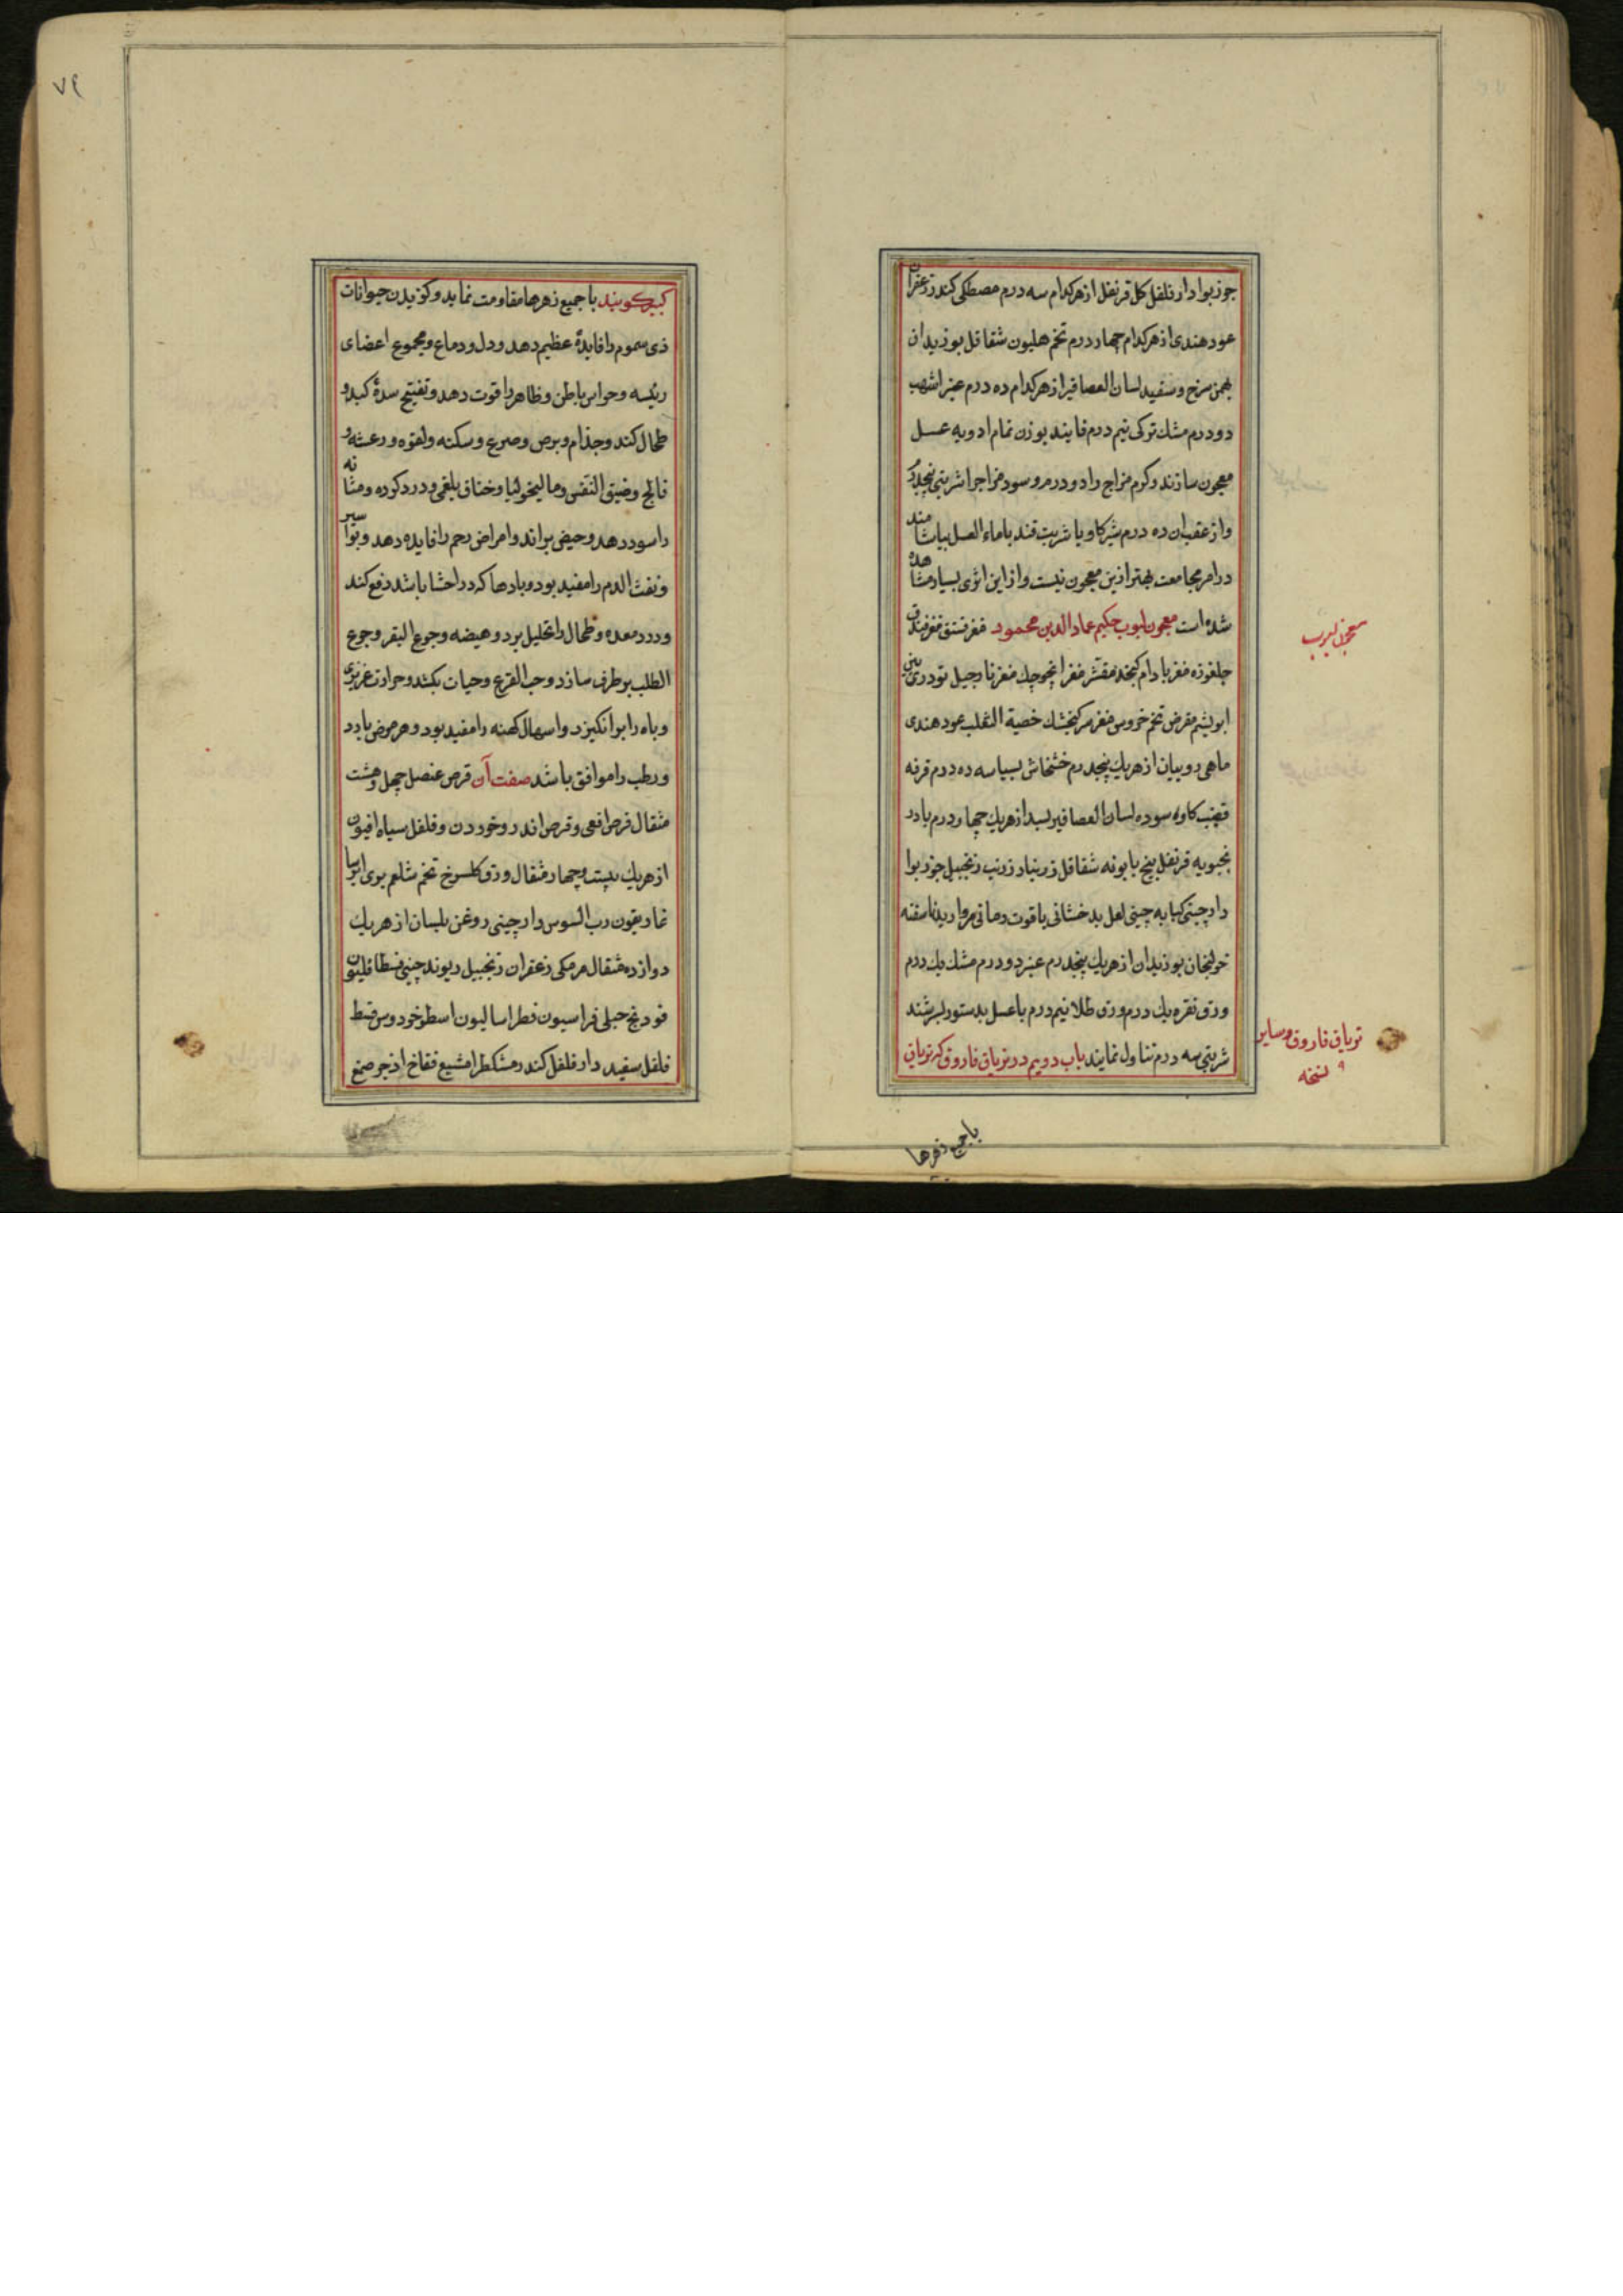 جوزبوا دارفلفل كل قرنفل ازهركدام سه درم مصطكى كندر زعفران
عود هندى ازهركدام چهار درم تخم هليون شقاقل بوزيدان
بهمن سرخ وسفيد لسان العصافير ازهركدام ده درم عنبر اشهب
دو درم مشك تركى نيم درم فانيد بوزن تمام ادويه عسل
معجون سازند وكرم مزاج را دو درم وسرد مزاج را شربتى پنجدرم
واز عقب ان ده درم شير كاو يا شربت قند يا ماء العسل بياشامند
در امر مجامعت بهتر ازين معجون نيست واز اين اثرى بسيار مشاهده
شده است معجون لبوب حكيم عماد الدين محمود مغز فستق مغز فندق
چلغوزه مغز بادام كنجد مقشر مغز انچوچك مغز نارجيل تودرى
ابريشم مقرض تخم خروس مغز سر كنجشك خصية الثعلب عود هندى
ماهى روبيان از هريك پنجدرم خشخاش بسباسه ده درم قرفه
قضيب كاو سوده لسان العصافير لسبد از هريك چهار درم بادر
نجبويه قرنفل بيخ بابونه شقاقل زرنباد زرنب زنجبيل جوزبوا
دارچينى كبابه چينى لعل بدخشانى ياقوت رمانى مرواريد ناسفته
خولنجان بوزيدان از هريك پنجدرم عنبر دو درم مشك يك درم
ورق نقره يك درم ورق طلا نيم درم باعسل بدستور بسرشند
شربتى سه درم تناول نمايند باب دويم در ترياق فاروق كه ترياق
معجون لبوب
ترياق فاروق وساير
نسخه
باجميع زهرها
٧٩
كبير كويند باجميع زهرها مقاومت نمايد وكزيدن حيوانات
ذى سموم را فايدهٔ عظيم دهد ودل ودماغ ومجموع اعضاى
رئيسه وحواس باطن وظاهر را قوت دهد وتفتيح سدهٔ كبد و
طحال كند وجذام وبرص وصرع وسكته ولقوه ورعشه و
فالج وضيق النفس وماليخوليا وخناق بلغمى ودرد كرده ومثانه
را سود دهد وحيض براند وامراض رحم را فايده دهد وبواسير
ونفث الدم را مفيد بود وبادها كه در احشا باشد دفع كند
ودرد معده وطحال را تحليل برد وهيضه وجوع البقر وجوع
الطلب برطرف سازد وحب القرع وحيات بكشد وحرارت غريزى
وباه را برانكيزد واسهال كهنه را مفيد بود وهر مرض بارد
ورطب را موافق باشد صفت آن قرص عنصل چهل وهشت
مثقال قرص افعى وقرص اندروخورون وفلفل سياه افيون
از هريك بيست وچهار مثقال ورق كلسرخ تخم شلغم برى ايرسا
غاريقون رب السوس دارچينى روغن بلسان از هريك
دوازده مثقال مرمكى زعفران زنجبيل ريوند چينى فنطافليون
فودنج جبلى فراسيون فطراساليون اسطوخودوس قسط
فلفل سفيد دارفلفل كندر مشكطرامشيع فقاح اذخر صمغ